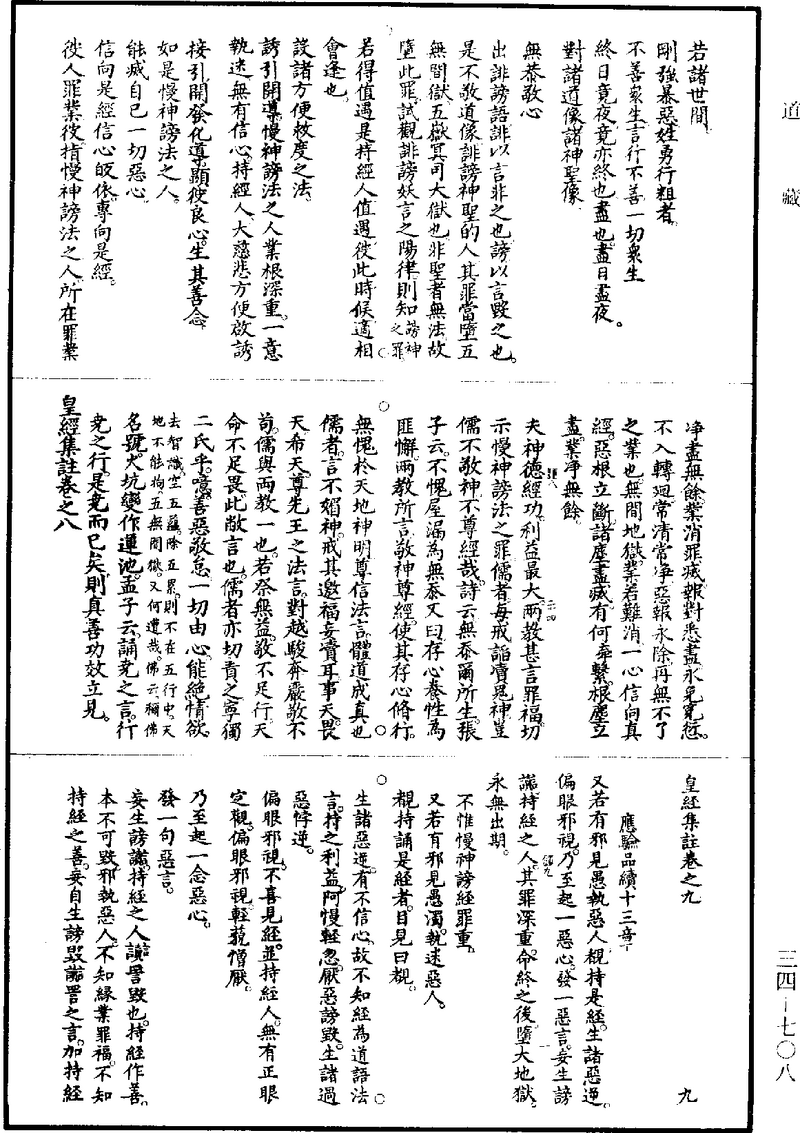 道藏
若諸世間
剛強暴惡姓勇行粗者。
不善衆生言行不善一切衆生
終日竟夜竟亦終也盡也。盡日盡夜。
對諸道像諸神聖像
無恭敬心
出誹謗語誹以言非之也謗以言毀之也。
是不敬道像誹謗神聖的人其罪當墮五
無間獄五嶽冥司大獄也非聖者無法故
墮此罪。試觀誹謗妖言之陽律則知謗神之罪
若得值遇是持經人值遇彼此時候適相
會逢也。
設諸方便救度之法。
誘引開導慢神謗法之人業根深重。一意
執迷無有信心。持經人大慈悲方便啟誘
接引開發化導顯彼良心。生其善念。
如是慢神謗法之人。
能滅自己一切惡心。
信向是經信心皈依。專向是經。
彼人罪業彼指慢神謗法之人所在罪業
淨盡無餘業消罪滅報對悉盡永免冤愆。
不入轉迴常清常淨惡報永除再無不了
之業也。無間地獄業若難消一心信向真
經。惡根立斷諸塵盡滅有何牽繫。根塵立
盡。業淨無餘。
夫神德經功。利益最大兩教甚言罪福。切
示慢神謗法之罪儒者每戒謟凟鬼神豈
儒不敬神不尊經哉。詩云無忝爾所生。張
子云。不愧屋漏為無忝又曰存心養性為
匪懈。兩教所言敬神尊經。使其存心脩行。
無愧於天地神明尊信法言。體道成真也
儒者。言不媚神。戒其邀福妄凟耳。事天。畏
天希天。尊先王之法言。對越駿奔嚴敬不
苟。儒與兩教一也。若祭無益。敬不足行。天
命不足畏。此敵言也。儒者亦切責之寧獨
二氏乎。噫善惡敬怠一切由心。能絕情欲。
去智識空五蘊除五累。則不在五行中。天
地不能拘。五無間獄。又何遭哉。佛云禰佛
名號火坑變作蓮池。孟子云。誦堯之言。行
堯之行。是堯而已矣。則真善功效立見。
皇經集註卷之八
皇經集註卷之九
九
應驗品續十三章
又若有邪見愚執惡人覩持是經。生諸惡逆。
偏眼邪視。乃至起一惡心。發一惡言。妄生謗
讟持經之人。其罪深重。命終之後。墮大地獄。
永無出期。
不惟慢神謗經罪重。
又若有邪見愚濁。執迷惡人。
覩持誦是經者。目見曰覩。
生諸惡逆。有不信心。故不知經為道語法
言。持之利益。阿慢輕忽。厭惡謗毀。生諸過
惡悖逆。
偏眼邪視。不喜見經。並持經人。無有正眼
定觀。偏眼邪視。輕藐僧厭。
乃至起一念惡心。
發一句惡言。
妄生謗讟持經之人讟詈毀也。持經作善。
本不可毀。邪執惡人。不知緣業罪福。不知
持經之善。妄自生謗毀讟詈之言。加持經
三四—七〇八